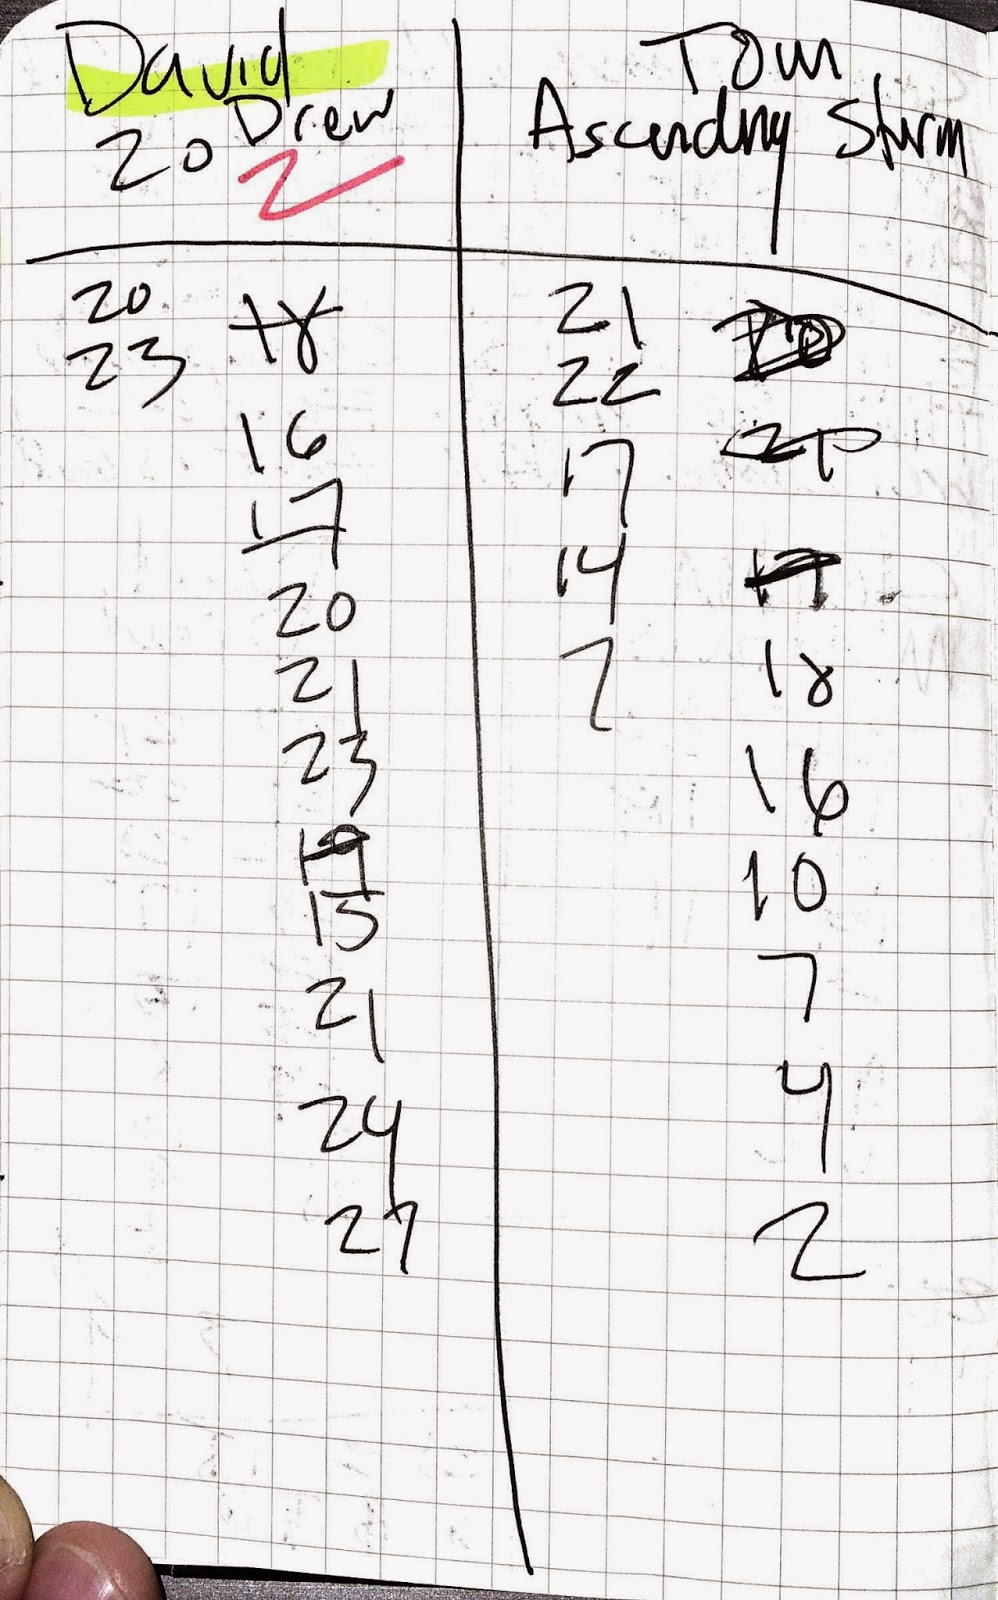 David
Drew
20 2
Tom
Ascending Storm
20 18
23
16
17
20
21
23
19
15
21
24
27
21
22
17 21
14 17
2 18
16
10
7
4
2